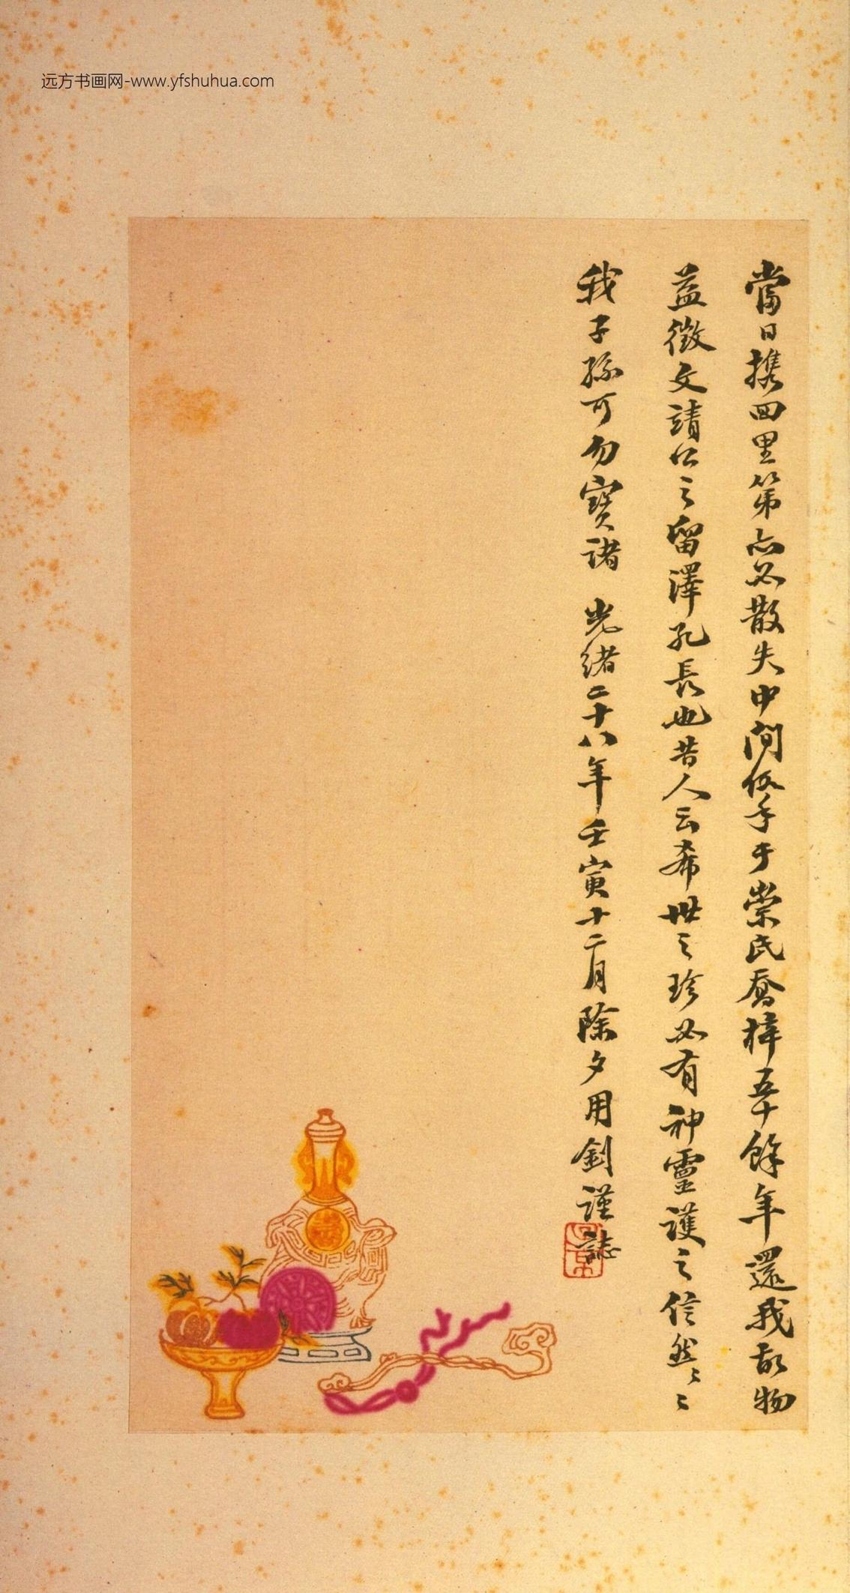 远方书画网-www.yfshuhua.com
當日携回里第亦必散失中間假手于崇氏喬梓五十餘年還我故物
益徵文靖公之留澤孔長也昔人云希世之珍必有神靈護之信然〻〻
我子孫可勿寶諸 光緒二十八年壬寅十二月除夕用釗謹誌